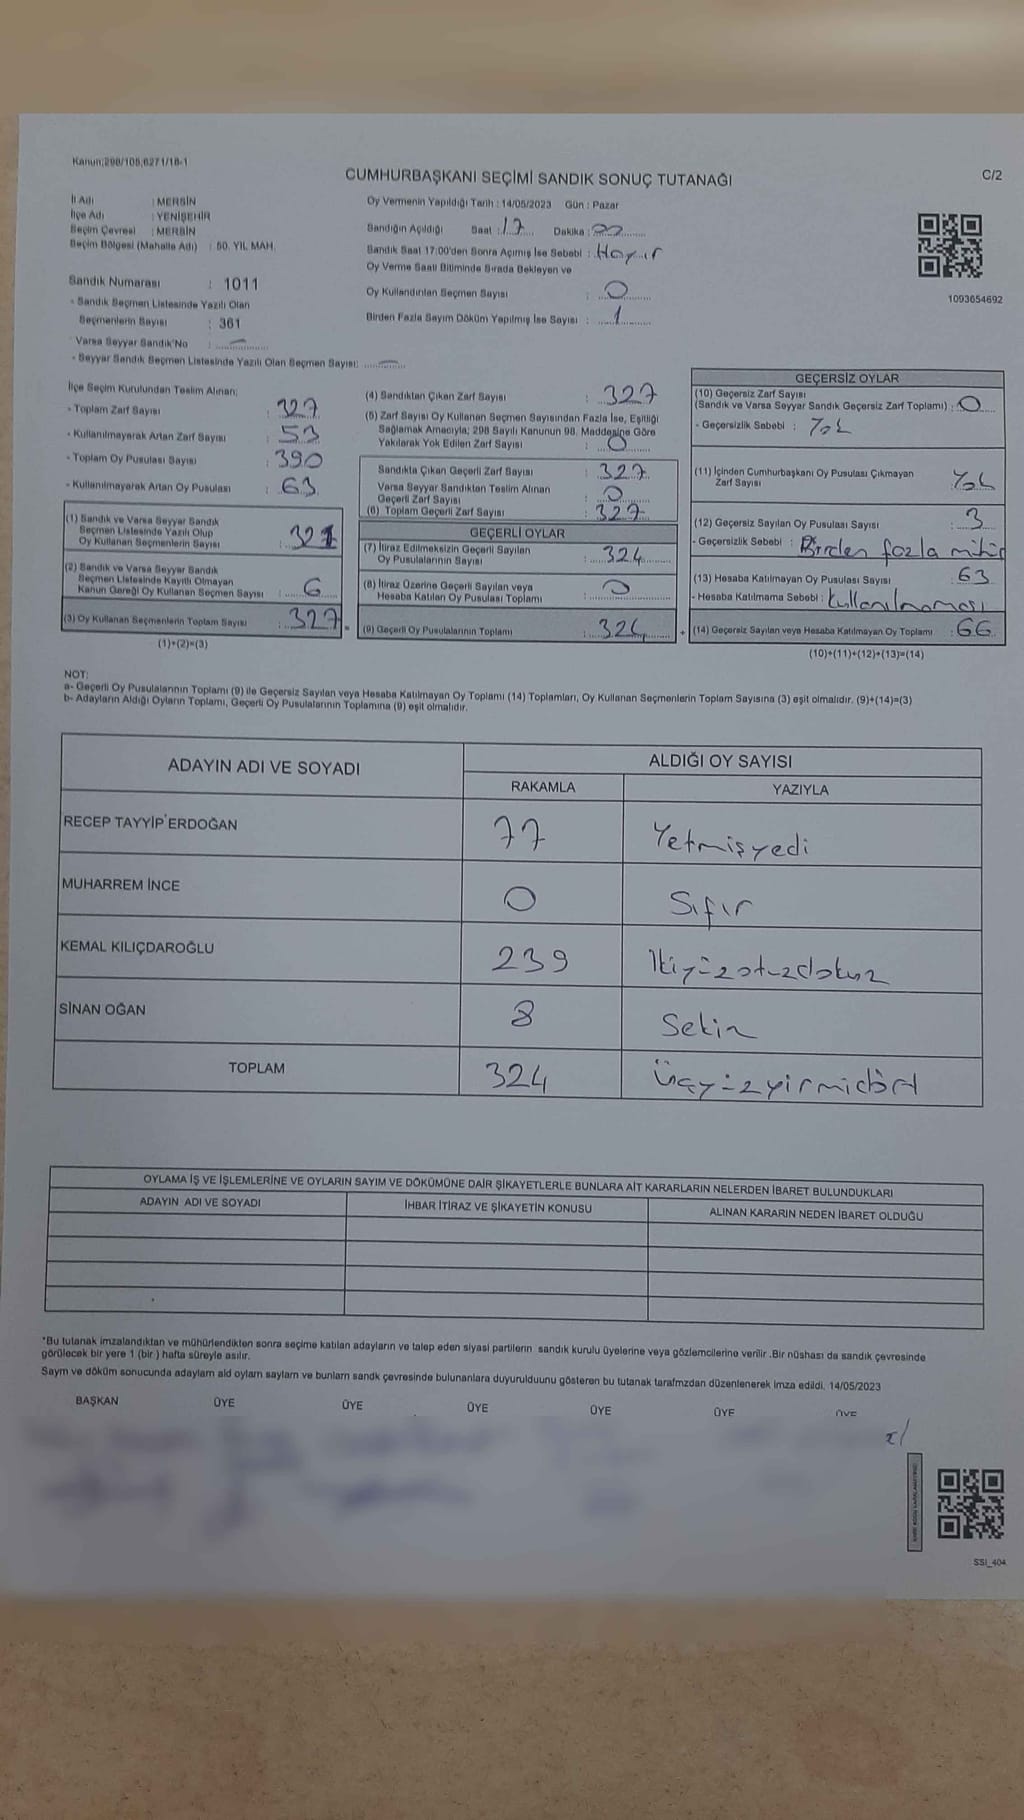 Kanun;298/108;6271/18-1
CUMHURBAŞKANI SEÇİMİ SANDIK SONUÇ TUTANAĞI
C/2
İl Adı : MERSİN
İlçe Adı : YENİŞEHİR
Seçim Çevresi : MERSİN
Seçim Bölgesi (Mahalle Adı) : 50. YIL MAH.
Sandık Numarası : 1011
- Sandık Seçmen Listesinde Yazılı Olan
Seçmenlerin Sayısı : 361
Varsa Seyyar Sandık No : —
- Seyyar Sandık Seçmen Listesinde Yazılı Olan Seçmen Sayısı: —
Oy Vermenin Yapıldığı Tarih : 14/05/2023 Gün : Pazar
Sandığın Açıldığı Saat : 17 Dakika :
Sandık Saat 17:00'den Sonra Açımış İse Sebebi : Hayır
Oy Verme Saati Bitiminde Sırada Bekleyen ve
Oy Kullandırılan Seçmen Sayısı : 0
Birden Fazla Sayım Döküm Yapılmış İse Sayısı : 1
1093654692
İlçe Seçim Kurulundan Teslim Alınan;
- Toplam Zarf Sayısı : 327
- Kullanılmayarak Artan Zarf Sayısı : 53
- Toplam Oy Pusulası Sayısı : 390
- Kullanılmayarak Artan Oy Pusulası : 63
(1) Sandık ve Varsa Seyyar Sandık
Seçmen Listesinde Yazılı Olup
Oy Kullanan Seçmenlerin Sayısı : 321
(2) Sandık ve Varsa Seyyar Sandık
Seçmen Listesinde Kayıtlı Olmayan
Kanun Gereği Oy Kullanan Seçmen Sayısı : 6
(3) Oy Kullanan Seçmenlerin Toplam Sayısı : 327 =
(1)+(2)=(3)
(4) Sandıktan Çıkan Zarf Sayısı : 327
(5) Zarf Sayısı Oy Kullanan Seçmen Sayısından Fazla İse, Eşitliği
Sağlamak Amacıyla; 298 Sayılı Kanunun 98. Maddesine Göre
Yakılarak Yok Edilen Zarf Sayısı : 0
Sandıkta Çıkan Geçerli Zarf Sayısı : 327
Varsa Seyyar Sandıktan Teslim Alınan
Geçerli Zarf Sayısı : 0
(6) Toplam Geçerli Zarf Sayısı : 327
GEÇERLİ OYLAR
(7) İtiraz Edilmeksizin Geçerli Sayılan
Oy Pusulalarının Sayısı : 324
(8) İtiraz Üzerine Geçerli Sayılan veya
Hesaba Katılan Oy Pusulası Toplamı : 0
(9) Geçerli Oy Pusulalarının Toplamı : 324 +
GEÇERSİZ OYLAR
(10) Geçersiz Zarf Sayısı
(Sandık ve Varsa Seyyar Sandık Geçersiz Zarf Toplamı) : 0
- Geçersizlik Sebebi : Yok
(11) İçinden Cumhurbaşkanı Oy Pusulası Çıkmayan
Zarf Sayısı Yok
(12) Geçersiz Sayılan Oy Pusulası Sayısı : 3
- Geçersizlik Sebebi : Birden fazla mühür
(13) Hesaba Katılmayan Oy Pusulası Sayısı : 63
- Hesaba Katılmama Sebebi : Kullanılmaması
(14) Geçersiz Sayılan veya Hesaba Katılmayan Oy Toplamı : 66
(10)+(11)+(12)+(13)=(14)
NOT:
a- Geçerli Oy Pusulalarının Toplamı (9) ile Geçersiz Sayılan veya Hesaba Katılmayan Oy Toplamı (14) Toplamları, Oy Kullanan Seçmenlerin Toplam Sayısına (3) eşit olmalıdır. (9)+(14)=(3)
b- Adayların Aldığı Oyların Toplamı, Geçerli Oy Pusulalarının Toplamına (9) eşit olmalıdır.
ADAYIN ADI VE SOYADI ALDIĞI OY SAYISI
RAKAMLA YAZIYLA
RECEP TAYYİP ERDOĞAN 77 Yetmişyedi
MUHARREM İNCE 0 Sıfır
KEMAL KILIÇDAROĞLU 239 İkiyüzotuzdokuz
SİNAN OĞAN 8 Sekiz
TOPLAM 324 Üçyüzyirmidört
OYLAMA İŞ VE İŞLEMLERİNE VE OYLARIN SAYIM VE DÖKÜMÜNE DAİR ŞİKAYETLERLE BUNLARA AİT KARARLARIN NELERDEN İBARET BULUNDUKLARI
ADAYIN ADI VE SOYADI İHBAR İTİRAZ VE ŞİKAYETİN KONUSU ALINAN KARARIN NEDEN İBARET OLDUĞU
*Bu tutanak imzalandıktan ve mühürlendikten sonra seçime katılan adayların ve talep eden siyasi partilerin sandık kurulu üyelerine veya gözlemcilerine verilir .Bir nüshası da sandık çevresinde
görülecek bir yere 1 (bir ) hafta süreyle asılır.
Sayım ve döküm sonucunda adaylarn ald oylarn saylarn ve bunlarn sandk çevresinde bulunanlara duyurulduunu gösteren bu tutanak tarafmzdan düzenlenerek imza edildi. 14/05/2023
BAŞKAN ÜYE ÜYE ÜYE ÜYE ÜYE ÜYE
SSI_404